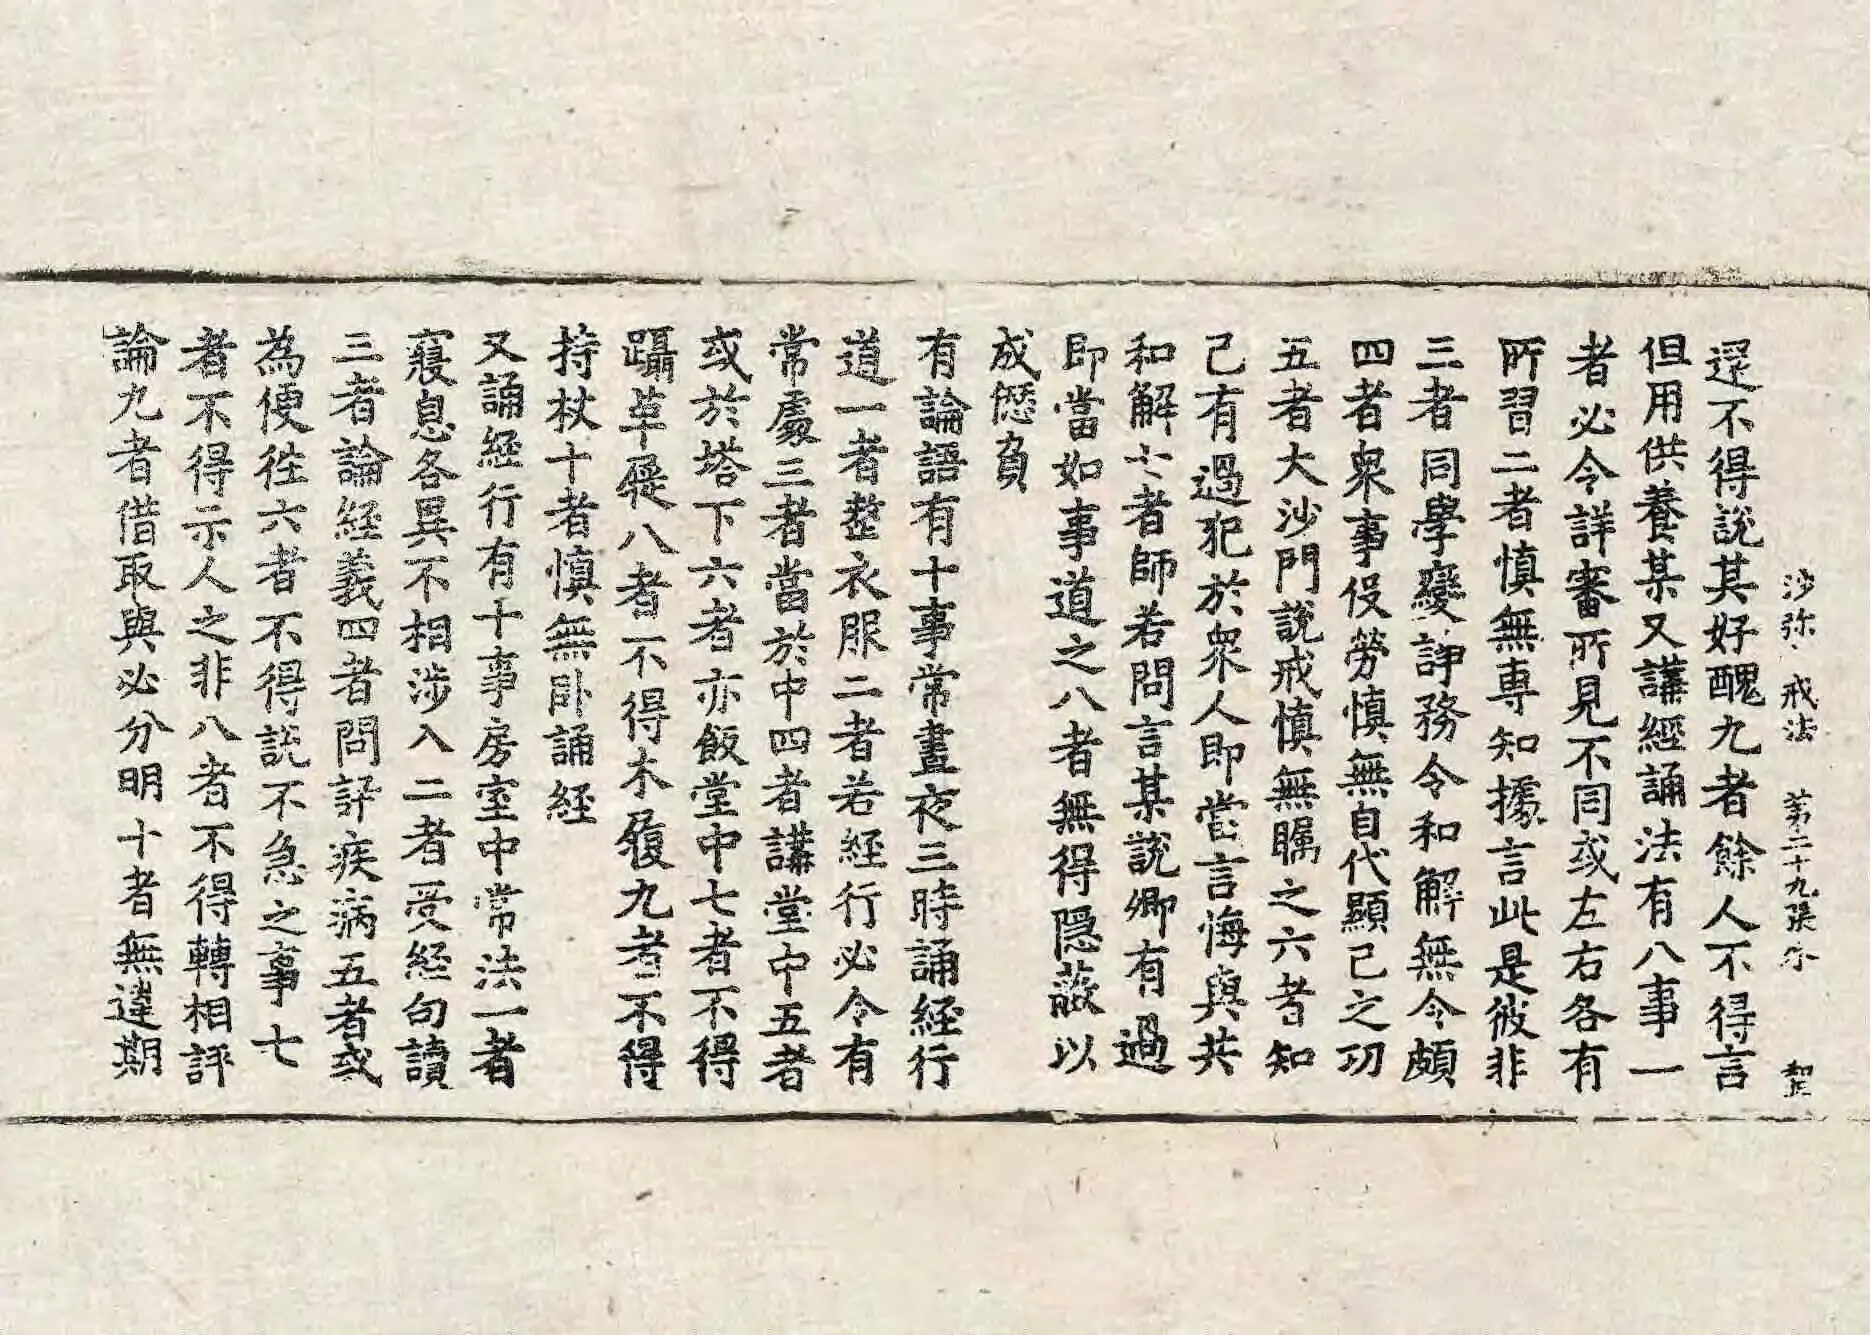 沙弥戒法 苐二十九張 㭍 智
還不得說其好醜九者餘人不得言
但用供養某又講經誦法有八事一
者必令詳審所見不同或左右各有
所習二者慎無專知據言此是彼非
三者同學變諍務令和解無令頗
四者衆事伇勞慎無自代顯己之功
五者大沙門說戒慎無瞩之六者知
己有過犯於衆人即當言悔與共
和解七者師若問言某說卿有過
即當如事道之八者無得隠蔽以
成𠎝負
有論語有十事常晝夜三時誦經行
道一者整衣服二者若經行必令有
常處三者當於中四者講堂中五者
或於塔下六者亦飯堂中七者不得
躡革屣八者不得木履九者不得
持杖十者慎無卧誦経
又誦經行有十事房室中常法一者
寢息各異不相涉入二者受経句讀
三者論経義四者問評疾病五者或
為便往六者不得説不急之事七
者不得示人之非八者不得轉相評
論九者借取與必分明十者無違期